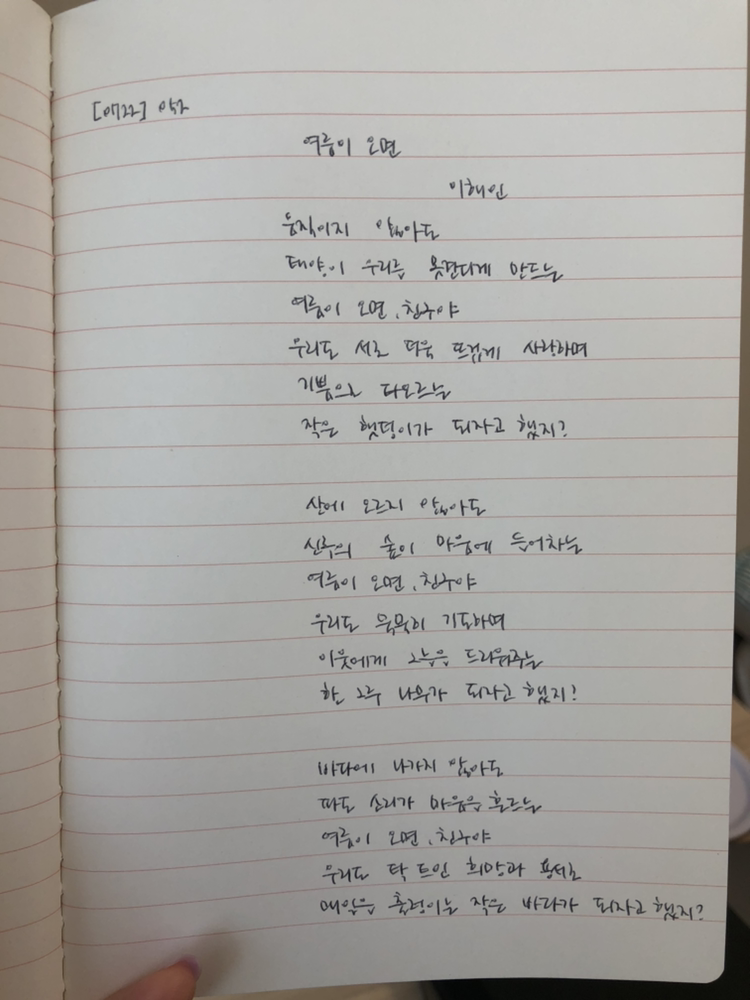 [0722]
여름이 오면
이해인
움직이지 않아도
태양이 우리를 못견디게 만드는
여름이 오면, 친구야
우리도 서로 더욱 뜨겁게 사랑하며
기쁨으로 타오르는
작은 햇덩이가 되자고 했지?
산에 오르지 않아도
신록의 숲이 마음에 들어차는
여름이 오면, 친구야
우리도 묵묵히 기도하며
이웃에게 그늘을 드리워주는
한 그루 나무가 되자고 했지?
바다에 나가지 않아도
파도 소리가 마음을 흔드는
여름이 오면, 친구야
우리도 탁 트인 희망과 용서로
매일을 출렁이는 작은 바다가 되자고 했지?